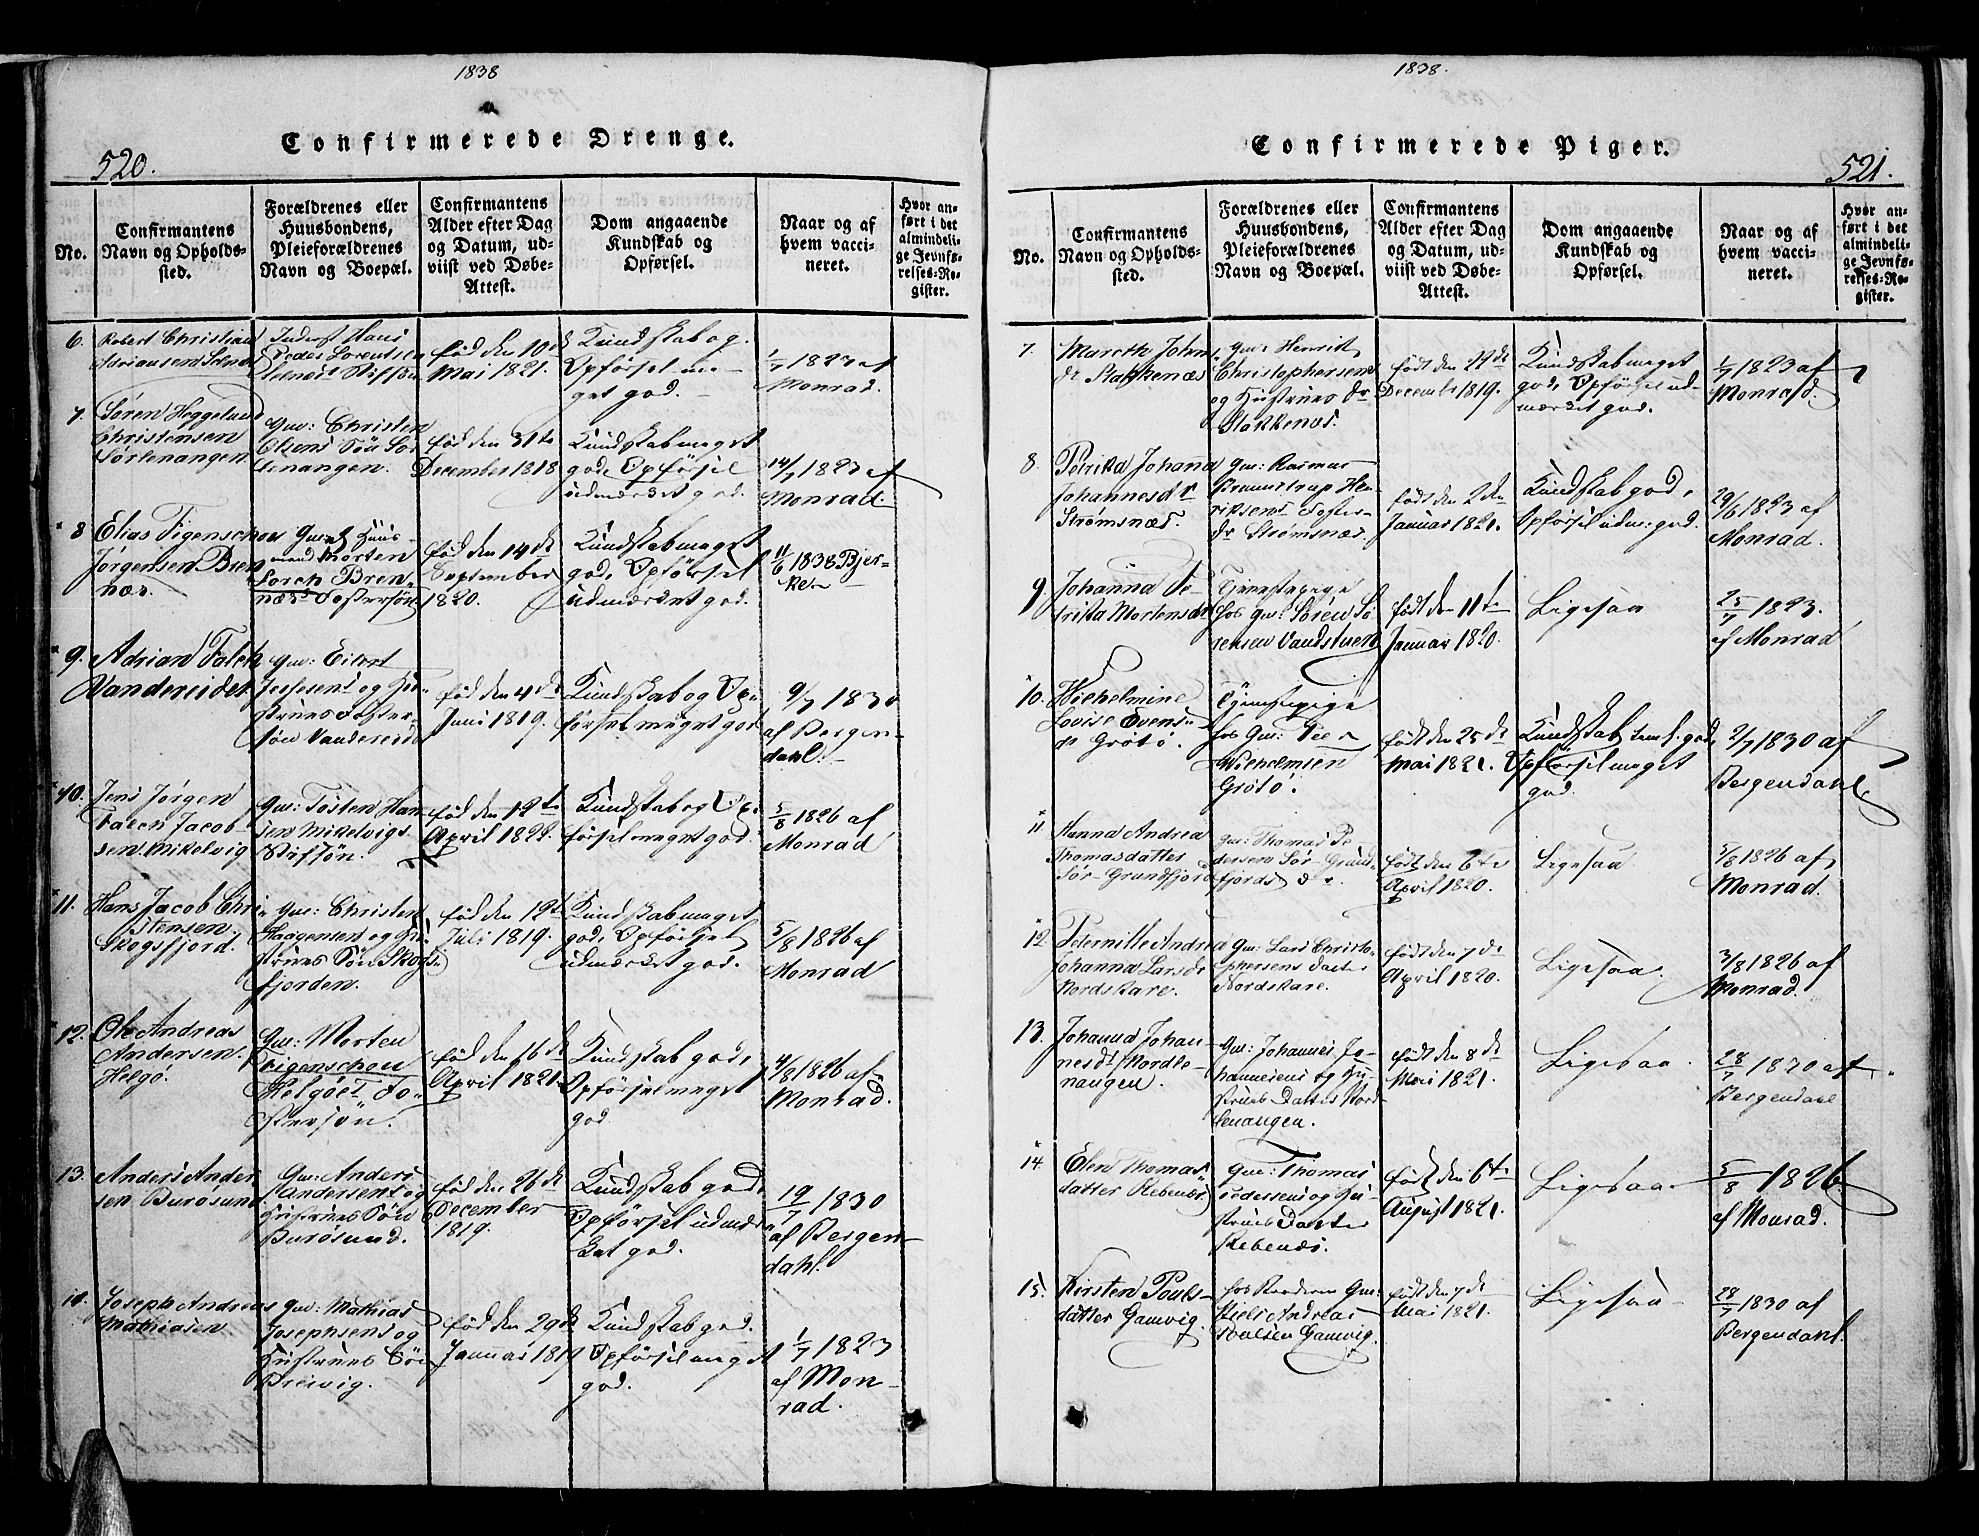 1838
Confirmerede Drenge.
520.
No.
Confirmantens
Navn og Opholds-
sted.
Forældrenes eller
Huusbondens,
Pleieforældrenes
Navn og Boepæl.
Confirmantens
Alder efter Dag
og Datum, ud-
viist ved Døbe-
Attest.
Dom angaaende
Kundskab og
Opførsel.
Naar og af
hvem vacci-
neret.
Hvor an-
ført i det
almindeli-
ge Jevnfø-
relses-Re-
gister.
6.
Robert Christian
født den 10de
Mai 1821.
Kundskab og
Opførsel me-
get god.
1/7 1823 af
Monrad.
7.
Søren Heggelund
Christensen
Sørlenangen
Gm: Christen
Olsens Søn Sør-
lenangen.
født den 31te
December 1818
Kundskab meget
god, Opførsel
udmærket god.
14/7 1823 af
Monrad.
8
Elias Figenschou
Jørgensen Bren-
næs.
Huus-
mand Morten
Lorch Bren-
næs Fostersøn
født den 14de
September
1820.
Kundskab meget
god, Opførsel
udmærket god.
11/6 1838 Bjer-
ke
9.
Adrian Falch
Vandereidet
Gm: Eilert
Jessesens og Hu-
struens Foster-
søn Vandereid
født den 4de
Juni 1819.
Kundskab og Op-
førsel meget god
9/7 1830
af Bergen-
dahl.
10.
Jens Jørgen
Falch Jacob-
sen Mikelvig
Gm: Tosten Han-
sen Mikelvigs
Stifsøn.
født den 12te
April 1822.
Kundskab og Op-
førsel meget god
5/8 1826 af
Monrad
11.
Hans Jacob Chri-
stensen
Skogsfjord.
Gm: Christen
Haagensen og Hu-
struens Søn Skogs-
fjorden.
født den 12te
Juli 1819.
Kundskab meget
god, Opførsel
udmærket god.
5/8 1826 af
Monrad
12.
Ole Andreas
Andersen.
Helgø.
Gm: Morten
Figenschou
Helgøes Fo-
stersøn.
født den 16de
April 1821.
Kundskab god,
Opførsel meget
god
4/8 1826 af
Monrad.
13.
Anders Ander-
sen Burøsund
Gm: Anders
Andersens og
Hustrues Søn
Burøsund.
født den 26de
December
1819.
Kundskab god,
Opførsel udmær-
ket god.
19/7 1830
af Bergen-
dahl.
14.
Joseph Andreas
Mathiasen
Gm: Mathias
Josephsens og
Hustrues Søn
Breivig.
født den 29de
Januar
Kundskab god.
Opførsel meget
god.
1/7 1823
af Mon-
rad.
1838.
Confirmerede Piger.
521.
No.
Confirmantens
Navn og Opholds-
sted.
Forældrenes eller
Huusbondens,
Pleieforældrenes
Navn og Boepæl.
Confirmantens
Alder efter Dag
og Datum, ud-
viist ved Døbe-
Attest.
Dom angaaende
Kundskab og
Opførsel.
Naar og af
hvem vacci-
neret.
Hvor an-
ført i det
almindeli-
ge Jevnfø-
relses-Re-
gister.
7.
Mareth Johns-
dr Stakkenæs
Gm: Henrik
Christophersens
og Hustrues dr
Stakkenæs.
født den 22de
December 1819.
Kundskab meget
god, Opførsel ud-
mærket god.
1/7 1823 af
Monrad.
8.
Petrika Johanna
Johannesdr
Strømsnæs.
Gm: Rasmus
Hen-
riksens Foster-
dr Strømsnæs.
født den 2den
Januar 1821.
Kundskab god,
Opførsel udm: god.
29/6 1823 af
Monrad.
9.
Johanna Pe-
trika Mortensdr
Tjenestepige
hos Gm: Søren Sø-
rensen Vandstuen
født den 11te
Januar 1820.
Ligesaa
25/7 1823.
af Monrad
10.
Wilhelmine
Lovise Evens-
dr Grøtø.
Tjenestepige
hos Gm: Peer
Wilhelmsen
Grøtø.
født den 25de
Mai 1821.
Kundskab temm. god,
Opførsel meget
god.
2/7 1830 af
Bergendahl
11
Hanna Andrea
Thomasdatter
Sør-Grundfjord
Gm: Thomas Pe-
dersen Sør-Grund-
fjords dr.
født den 6te
April 1820.
Ligesaa
5/8 1826 af
Monrad.
12.
Peternille Andrea
Johanna Larsdr
Nordskare.
Gm: Lars Christo-
phersens Datter
Nordskare.
født den 7de
April 1820.
Ligesaa
3/8 1826 af
Monrad.
13.
Johanna Johan-
nesdr Nordle-
nangen.
Gm: Johannes Jo-
hannesens og Hu-
strues Datter Nord-
lenangen.
født den 8de
Mai 1821.
Ligesaa
28/7 1830 af
Bergendahl
14
Elen Thomas-
datter Rebenæs
Gm: Thomas
Pedersens og Hu-
strues Datter
Rebenæs.
født den 6te
August 1821.
Ligesaa
5/8 1826.
af Monrad.
15.
Kirsten Pouls-
datter Gamvig.
hos Broderen Gm:
Niels Andreas
Poulsen Gamvig.
født den 7de
Mai 1821.
Ligesaa
28/7 1830 af
Bergendahl.